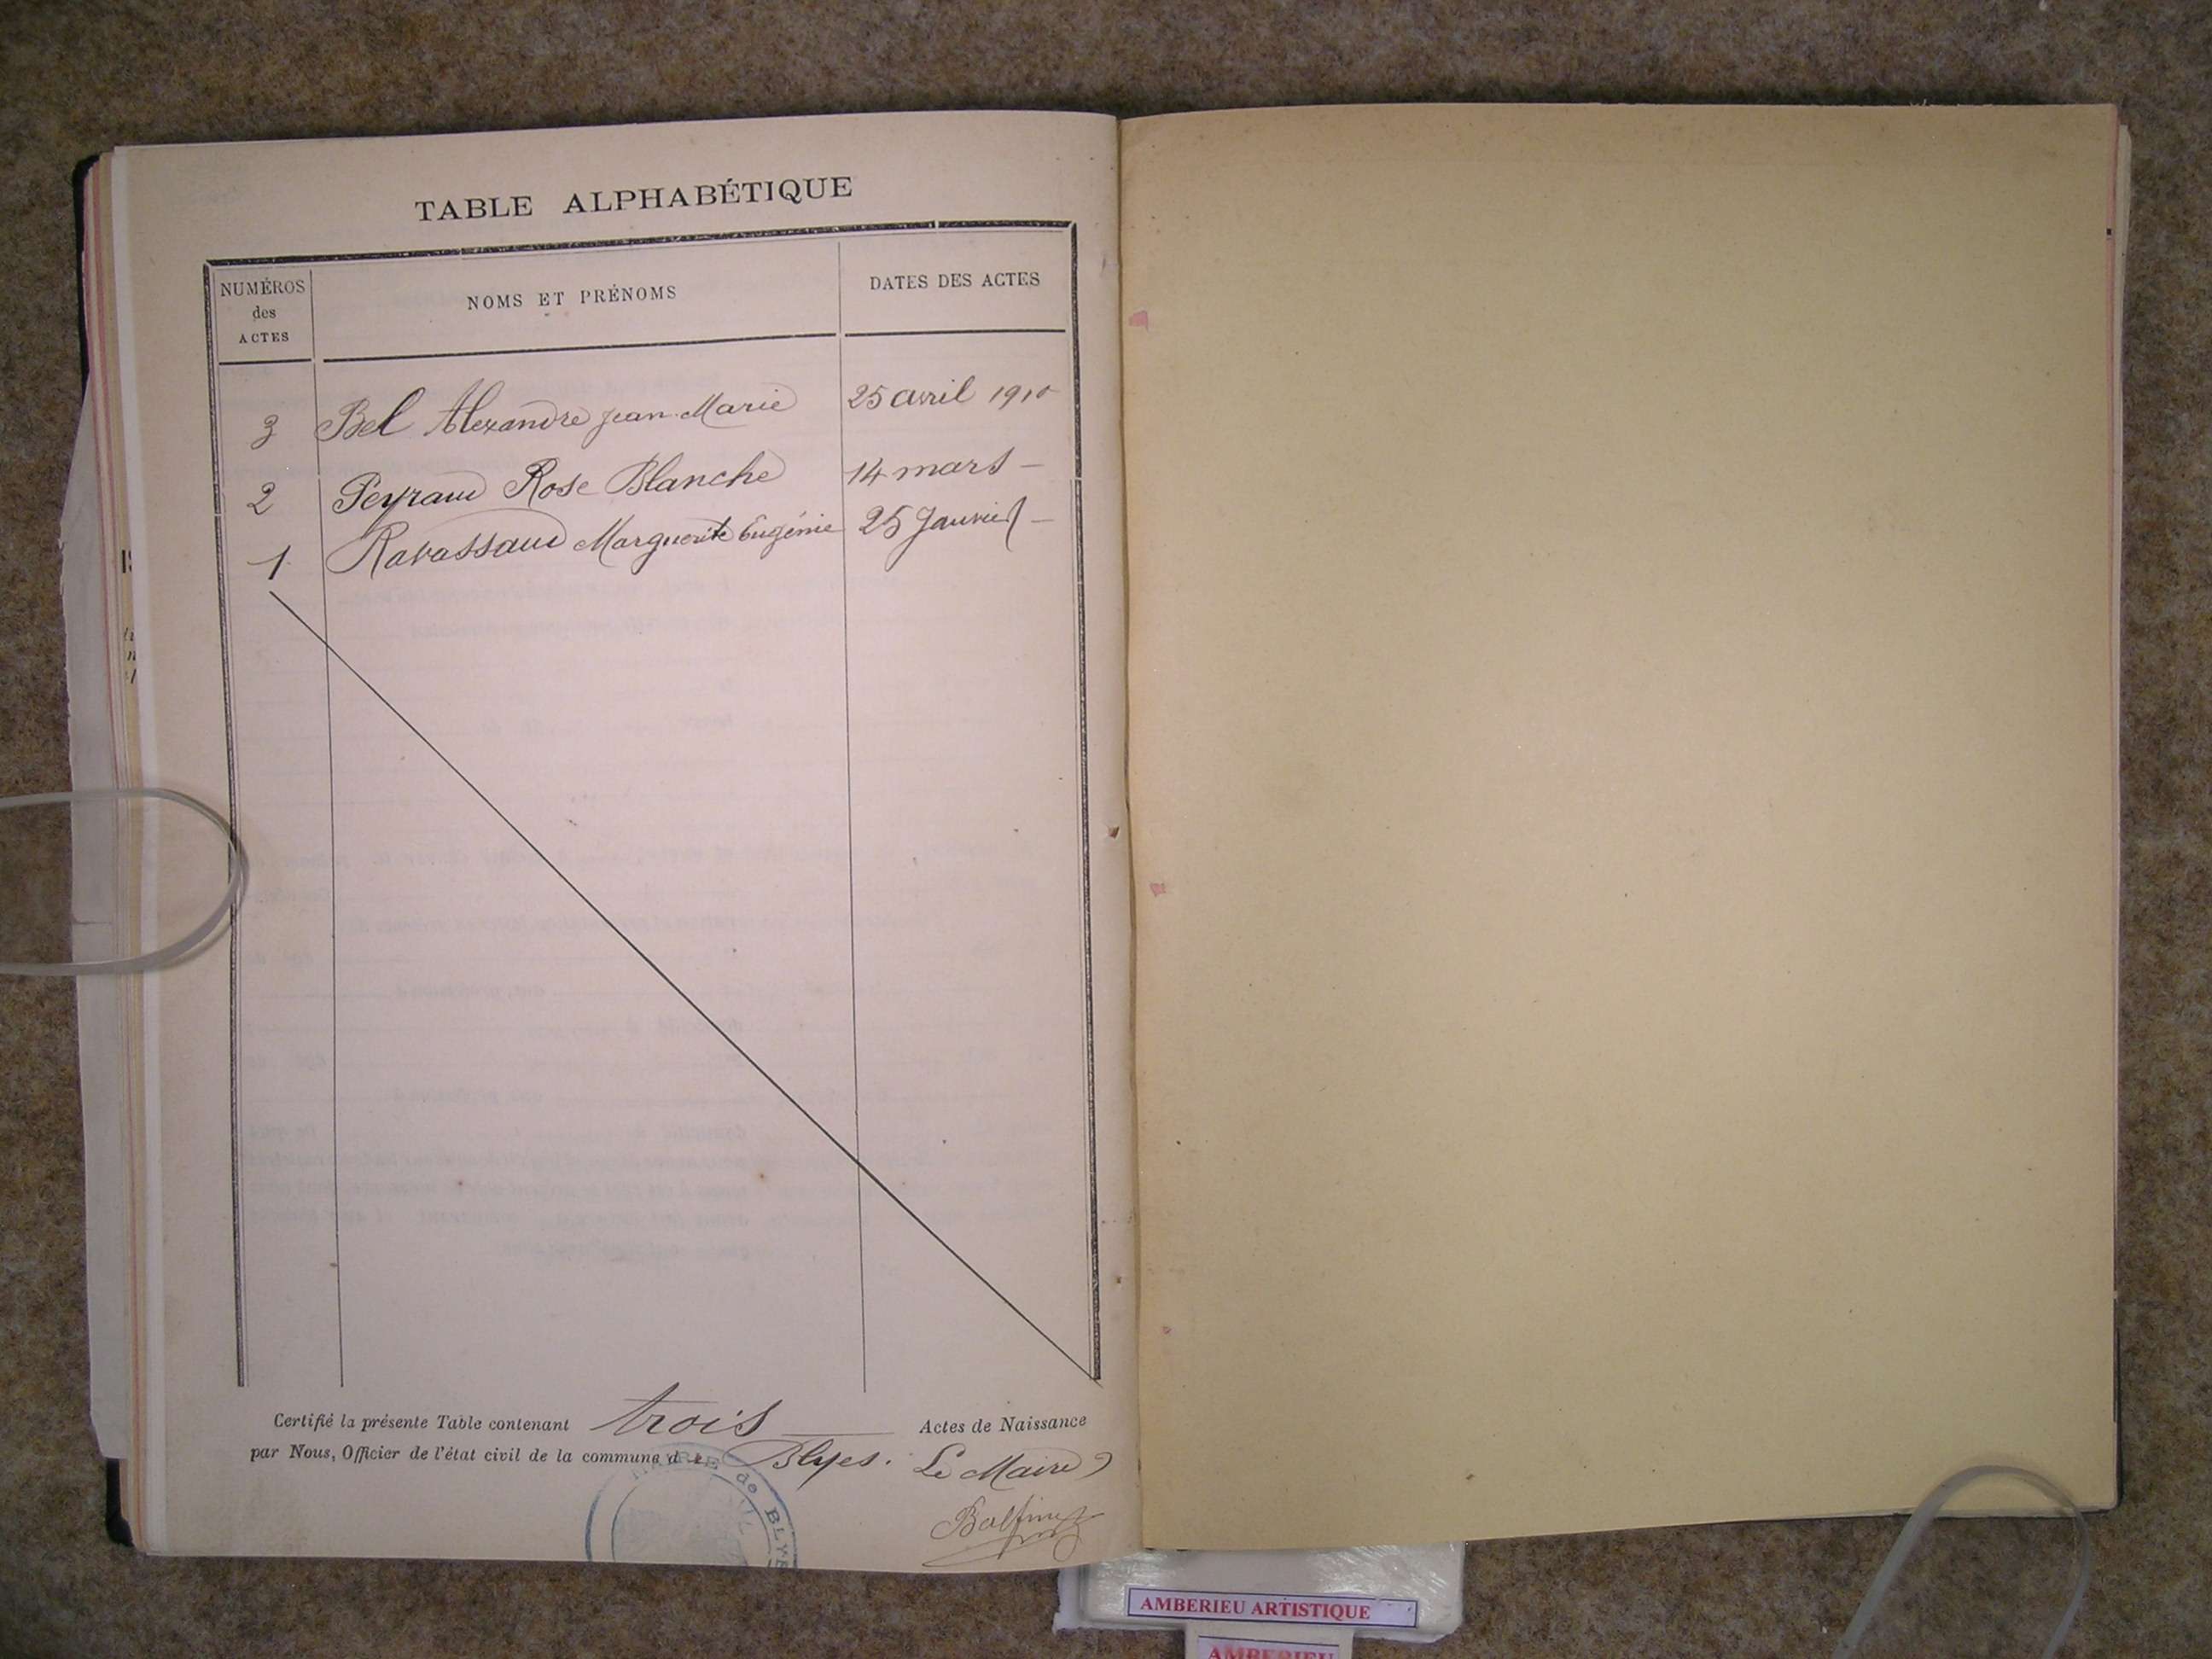 TABLE ALPHABÉTIQUE
NUMÉROS
des
ACTES
NOMS ET PRÉNOMS
DATES DES ACTES
3 Bel Alexandre Jean Marie 25 avril 1910
2 Peyraud Rose Blanche 14 mars –
1 Ravassaud Marguerite Eugénie 25 Janvier –
Certifié la présente Table contenant trois Actes de Naissance
par Nous, Officier de l'état civil de la commune de Blyes. Le Maire
MAIRIE de BLYE
AMBERIEU ARTISTIQUE
AMBERIEU